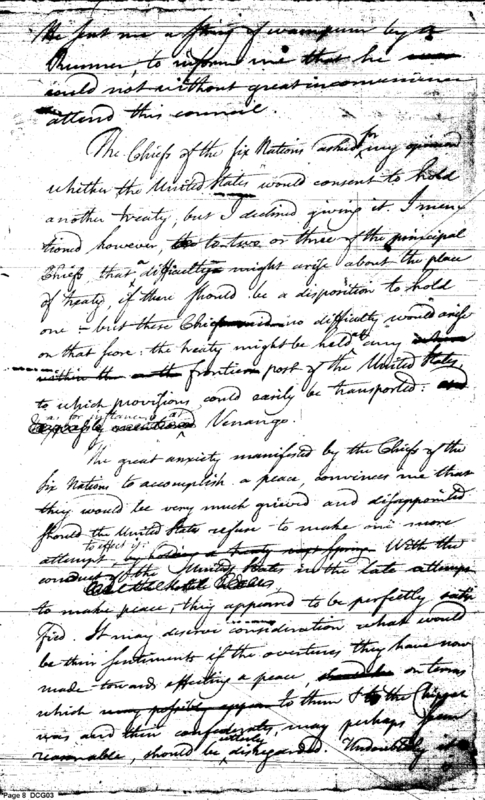 He sent me a string of wampum by a
Runner to inform me that he
could not without great inconvenience
attend this council.
The Chiefs of the six Nations asked for my opinion
whether the United States would consent to hold
another treaty, but I declined giving it. I men
tioned however, to two or three of the principal
Chiefs that a difficulty might arise about the place
of treaty if there should be a disposition to hold
one – but these Chiefs no difficulty would arise
on that score: the treaty might be held at any
within the frontier post of the United States
to which provisions could easily be transported: and
as for instance at Venango.
The great anxiety manifested by the Chiefs of the
six Nations to accomplish a peace, convinces me that
they would be very much grieved and disappointed
should the United States refuse to make one more
attempt, to effect it: by holding a treaty next Spring. With the
conduct of the United States in the late attempt
to make peace, they appeared to be perfectly satis
fied. It may deserve consideration what would
be their sentiments if the overtures they have now
made towards effecting a peace, should be on terms
which may possibly appear to them & to the Chippe
was and their confederates, may perhaps seem
reasonable, should be entirely disregarded. Undoubtedly
Page 8 DCG03